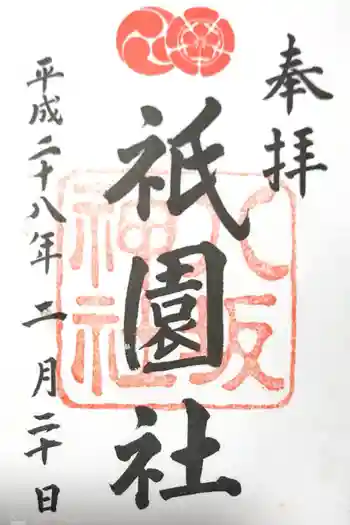 奉拝
八坂
神社
祇園社
平成二十八年二月二十日